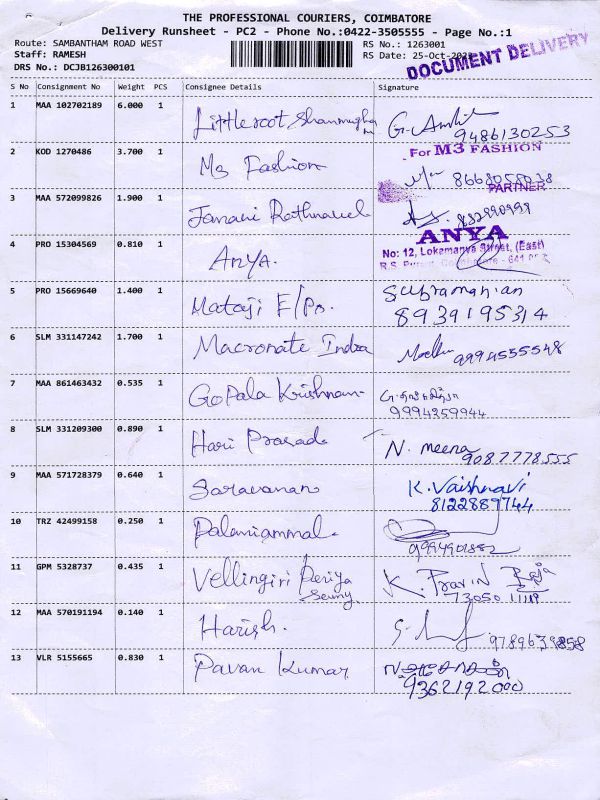 THE PROFESSIONAL COURIERS, COIMBATORE
Delivery Runsheet - PC2 - Phone No.:0422-3505555 - Page No.:1
Route: SAMBANTHAM ROAD WEST
RS No.: 1263001
Staff: RAMESH
RS Date: 25-Oct-
DOCUMENT DELIVERY
DRS No.: DCJB126300101
S No Consignment No Weight PCS Consignee Details Signature
1 MAA 102702189 6.000 1 Littleroot Shanmugham
9486130253
2 KOD 1270486 3.700 1 M3 Fashion
For M3 FASHION
8668055038
PARTNER
3 MAA 572099826 1.900 1 Janani Rathnavel
4 PRO 15304569 0.810 1 ANYA.
ANYA
No: 12, Lokamanya Street, (East)
5 PRO 15669640 1.400 1 Mataji E/Po. Subramanian
8939195314
6 SLM 331147242 1.700 1 Macronate India
9994555548
7 MAA 861463432 0.535 1 Gopala Krishnan
9994259944
8 SLM 331209300 0.890 1 Hari Prasad N. meena
9087778555
9 MAA 571728379 0.640 1 Saravanan K. Vaishnavi
8122889744
10 TRZ 42499158 0.250 1 Palaniammal.
9994901882
11 GPM 5328737 0.435 1 Vellingiri Periya K. Pravin Raja
Samy 73050 11119
12 MAA 570191194 0.140 1 Harish.
13 VLR 5155665 0.830 1 Pavan Kumar
9362192000